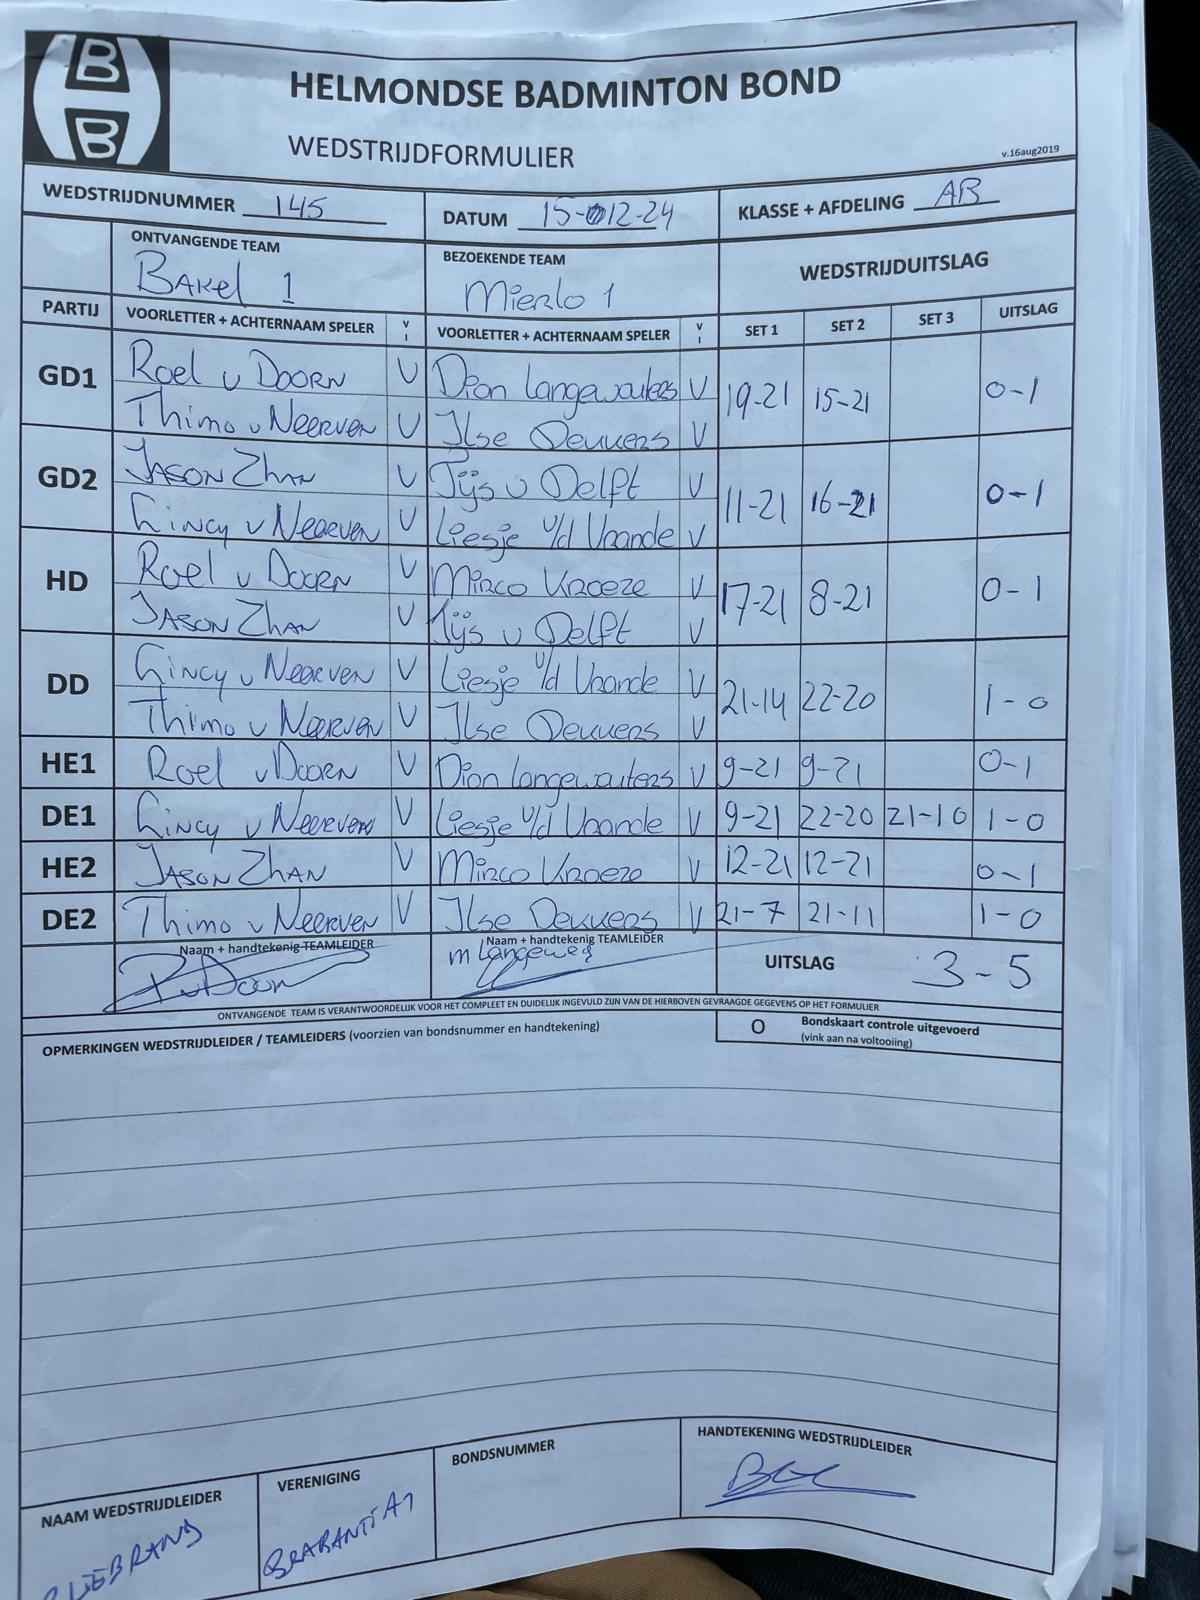 B
B
HELMONDSE BADMINTON BOND
WEDSTRIJDFORMULIER
v.16aug2019
WEDSTRIJDNUMMER 145 DATUM 15-12-24 KLASSE + AFDELING AB
ONTVANGENDE TEAM BEZOEKENDE TEAM WEDSTRIJDUITSLAG
Bakel 1 Mierlo 1
PARTIJ VOORLETTER + ACHTERNAAM SPELER V I VOORLETTER + ACHTERNAAM SPELER V I SET 1 SET 2 SET 3 UITSLAG
GD1 Roel v Doorn V Dion Langewouters V 19-21 15-21 0-1
Thimo v Neerven V Ilse Dekkers V
GD2 Jason Zhan V Tijs v Delft V 11-21 16-21 0-1
Gincy v Neerven V Liesje v/d Vrande V
HD Roel v Doorn V Mirco Kroeze V 17-21 8-21 0-1
Jason Zhan V Tijs v Delft V
DD Gincy v Neerven V Liesje v/d Vrande V 21-14 22-20 1-0
Thimo v Neerven V Ilse Dekkers V
HE1 Roel v Doorn V Dion Langewouters V 9-21 9-21 0-1
DE1 Gincy v Neerven V Liesje v/d Vrande V 9-21 22-20 21-10 1-0
HE2 Jason Zhan V Mirco Kroeze V 12-21 12-21 0-1
DE2 Thimo v Neerven V Ilse Dekkers V 21-7 21-11 1-0
Naam + handtekenig TEAMLEIDER Naam + handtekenig TEAMLEIDER UITSLAG 3-5
RvDoorn
ONTVANGENDE TEAM IS VERANTWOORDELIJK VOOR HET COMPLEET EN DUIDELIJK INGEVULD ZIJN VAN DE HIERBOVEN GEVRAAGDE GEGEVENS OP HET FORMULIER
OPMERKINGEN WEDSTRIJDLEIDER / TEAMLEIDERS (voorzien van bondsnummer en handtekening) O Bondskaart controle uitgevoerd
(vink aan na voltooiing)
NAAM WEDSTRIJDLEIDER VERENIGING BONDSNUMMER HANDTEKENING WEDSTRIJDLEIDER
BRABANTIA